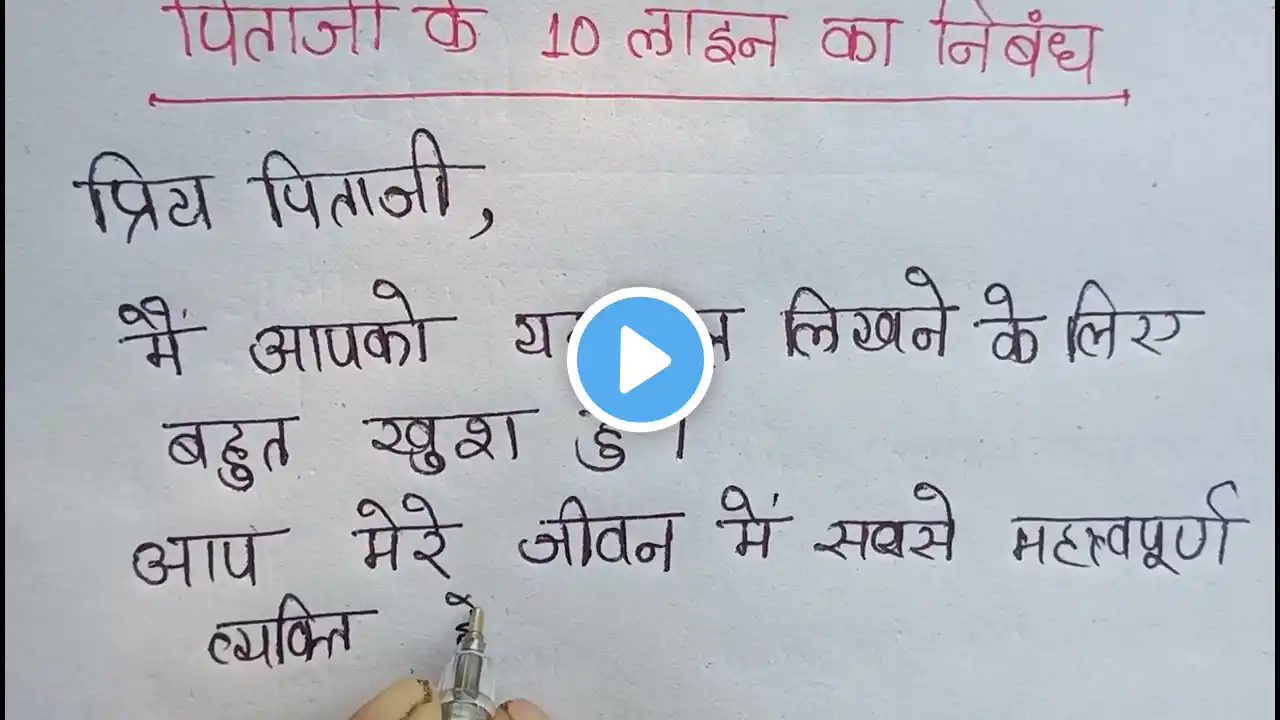 पिताजी के 10 लाइन का निबंध
प्रिय पिताजी,
मैं आपको लिखने के लिए
बहुत खुश हु।
आप मेरे जीवन में सबसे महत्वपूर्ण
व्यक्ति